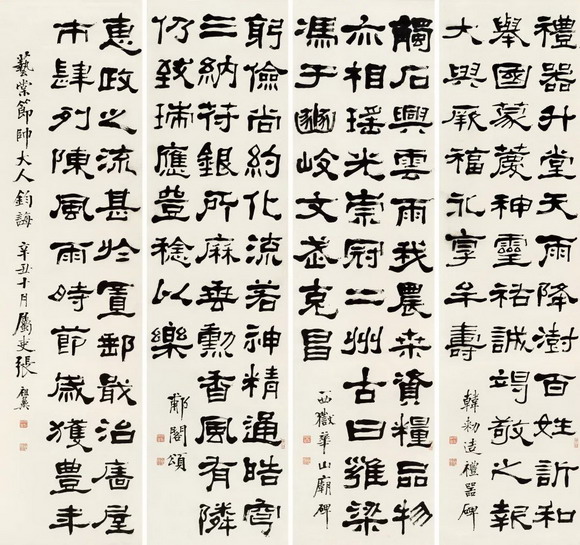 禮器升堂天雨降澍百姓訢和
舉國蒙慶神靈祐誠竭敬之報
天與厥福永享牟壽
韓勑造禮器碑
觸石興雲雨我農桑資糧品物
亦相瑤光崇冠二州古曰雍梁
馮于豳岐文武克昌
西嶽華山廟碑
躬儉尚約化流若神精通皓穹
三納苻銀所歷垂勳香風有隣
仍致瑞應豐稔以樂
郙閣頌
惠政之流甚於置郵敢治廧屋
市肆列陳風雨時節歲獲豐年
藝棠節帥大人鈞誨 辛丑十月屬吏張祖翼